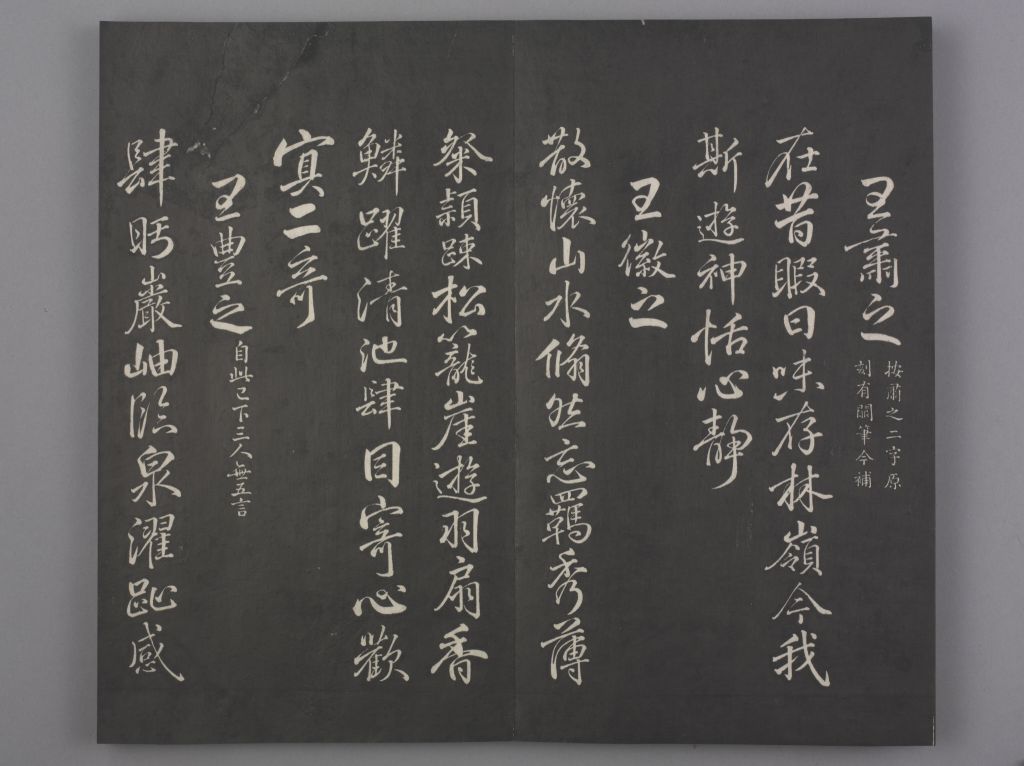 王肅之
按肅之二字原
刻有闕筆今補
在昔暇日味存林嶺今我
斯遊神恬心靜
王徽之
散懷山水翛然忘羈秀薄
粲穎疎松籠崖遊羽扇香
鱗躍清池肆目寄心歡
寘二奇
王豐之
自此已下三人無五言
肆眄巖岫臨泉濯趾感